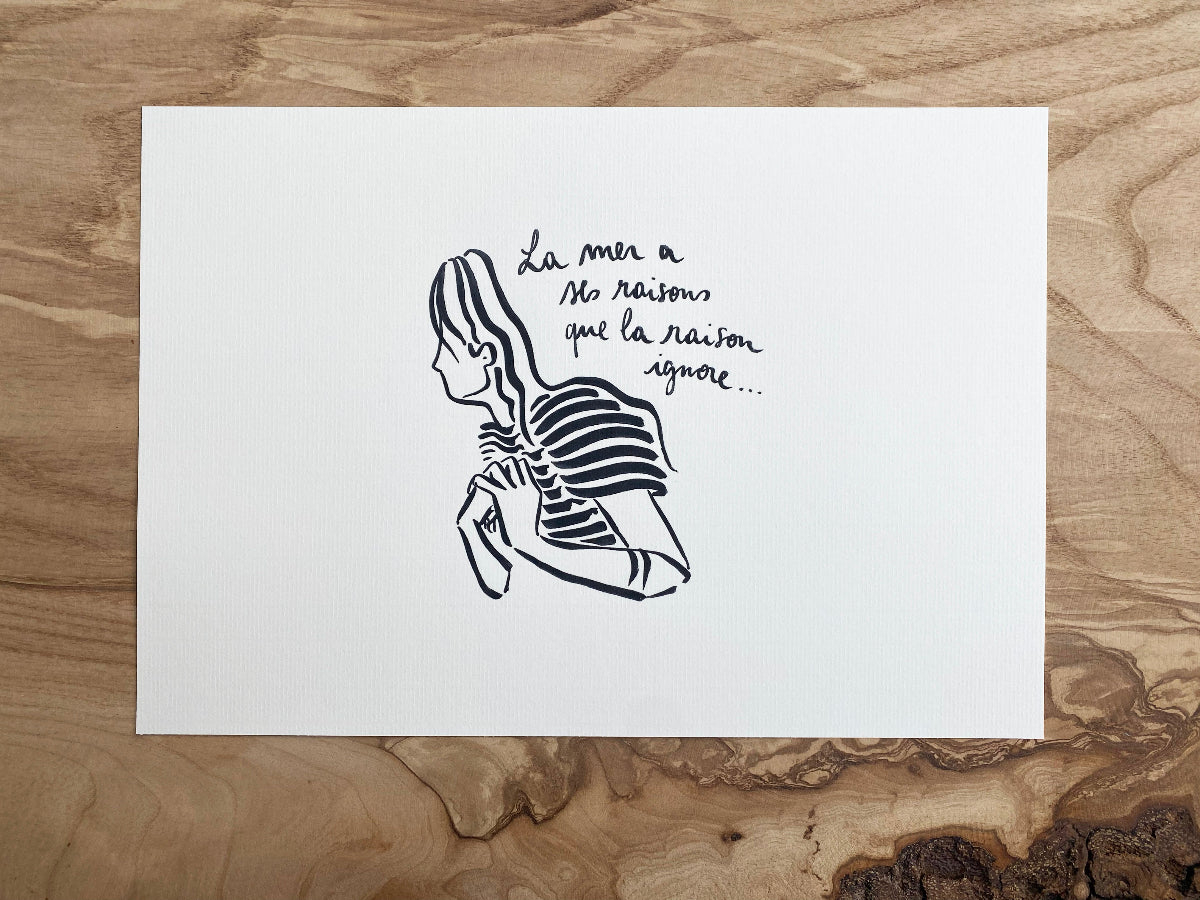 La mer a
ses raisons
que la raison
ignore...